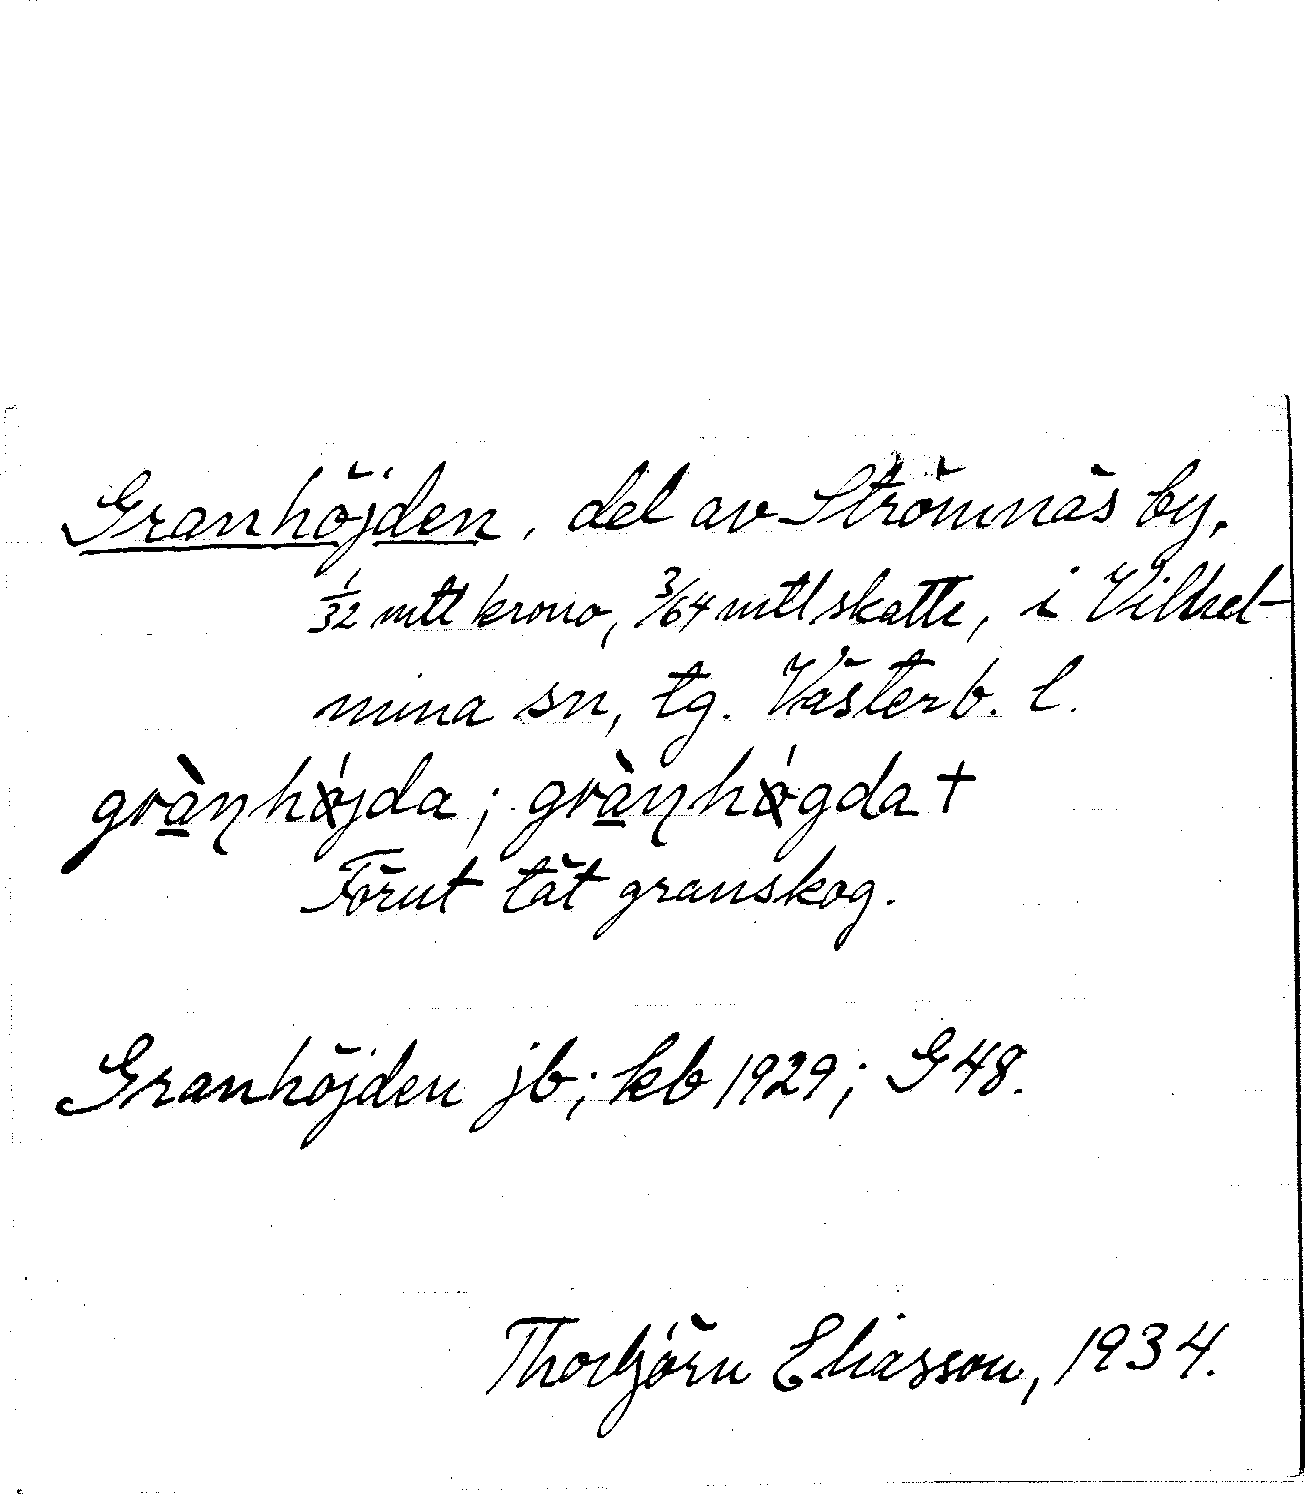 Granhöjden, del av Strömnäs by,
1/32 mtl krono, 3/64 mtl skatte, i Vilhel-
mina sn, tg. Västerb. l.
grànhǿjda; grànhǿgda +
Förut tät granskog.
Granhöjden jb; kb 1929; G48.
Thorbjörn Eliasson, 1934.